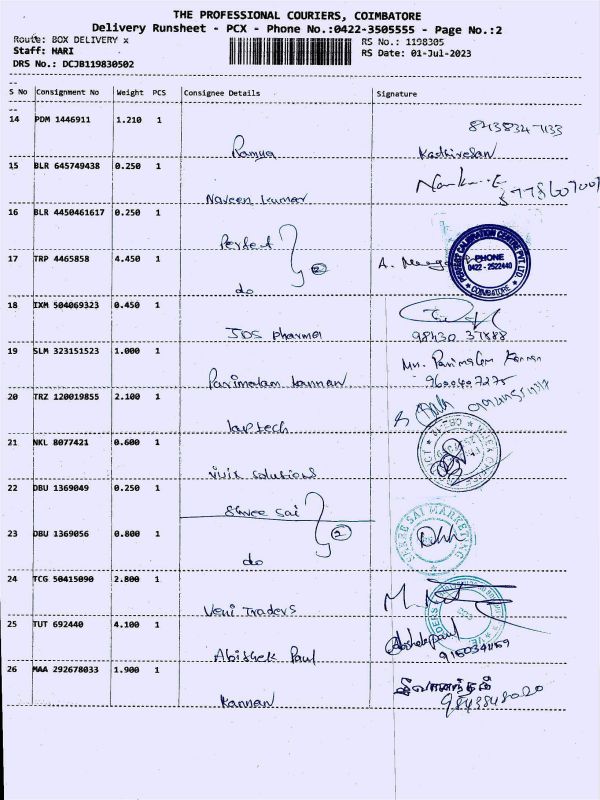 THE PROFESSIONAL COURIERS, COIMBATORE
Delivery Runsheet - PCX - Phone No.:0422-3505555 - Page No.:2
Route: BOX DELIVERY x
RS No.: 1198305
Staff: HARI
RS Date: 01-Jul-2023
DRS No.: DCJB119830502
S No Consignment No Weight PCS Consignee Details Signature
14 PDM 1446911 1.210 1
Ramya Kadhiresan
15 BLR 645749438 0.250 1
Naveen kumar
16 BLR 4450461617 0.250 1
Perfect
PERFECT CALIBRATION CENTRE PVT. LTD.
PHONE
0422 - 2522440
COIMBATORE
17 TRP 4465858 4.450 1
do 2
18 IXM 504069323 0.450 1
JDS pharma 98430 37888
19 SLM 323151523 1.000 1
Parimalam kannan
20 TRZ 120019855 2.100 1
laptech
21 NKL 8077421 0.600 1
vivik solutions
22 DBU 1369049 0.250 1
Shree sai
SHREE SAI MARKETING
23 DBU 1369056 0.800 1
do 2
24 TCG 50415090 2.800 1
Veni Traders
25 TUT 692440 4.100 1
Abishek Paul Abishekpaul
26 MAA 292678033 1.900 1
Kannan